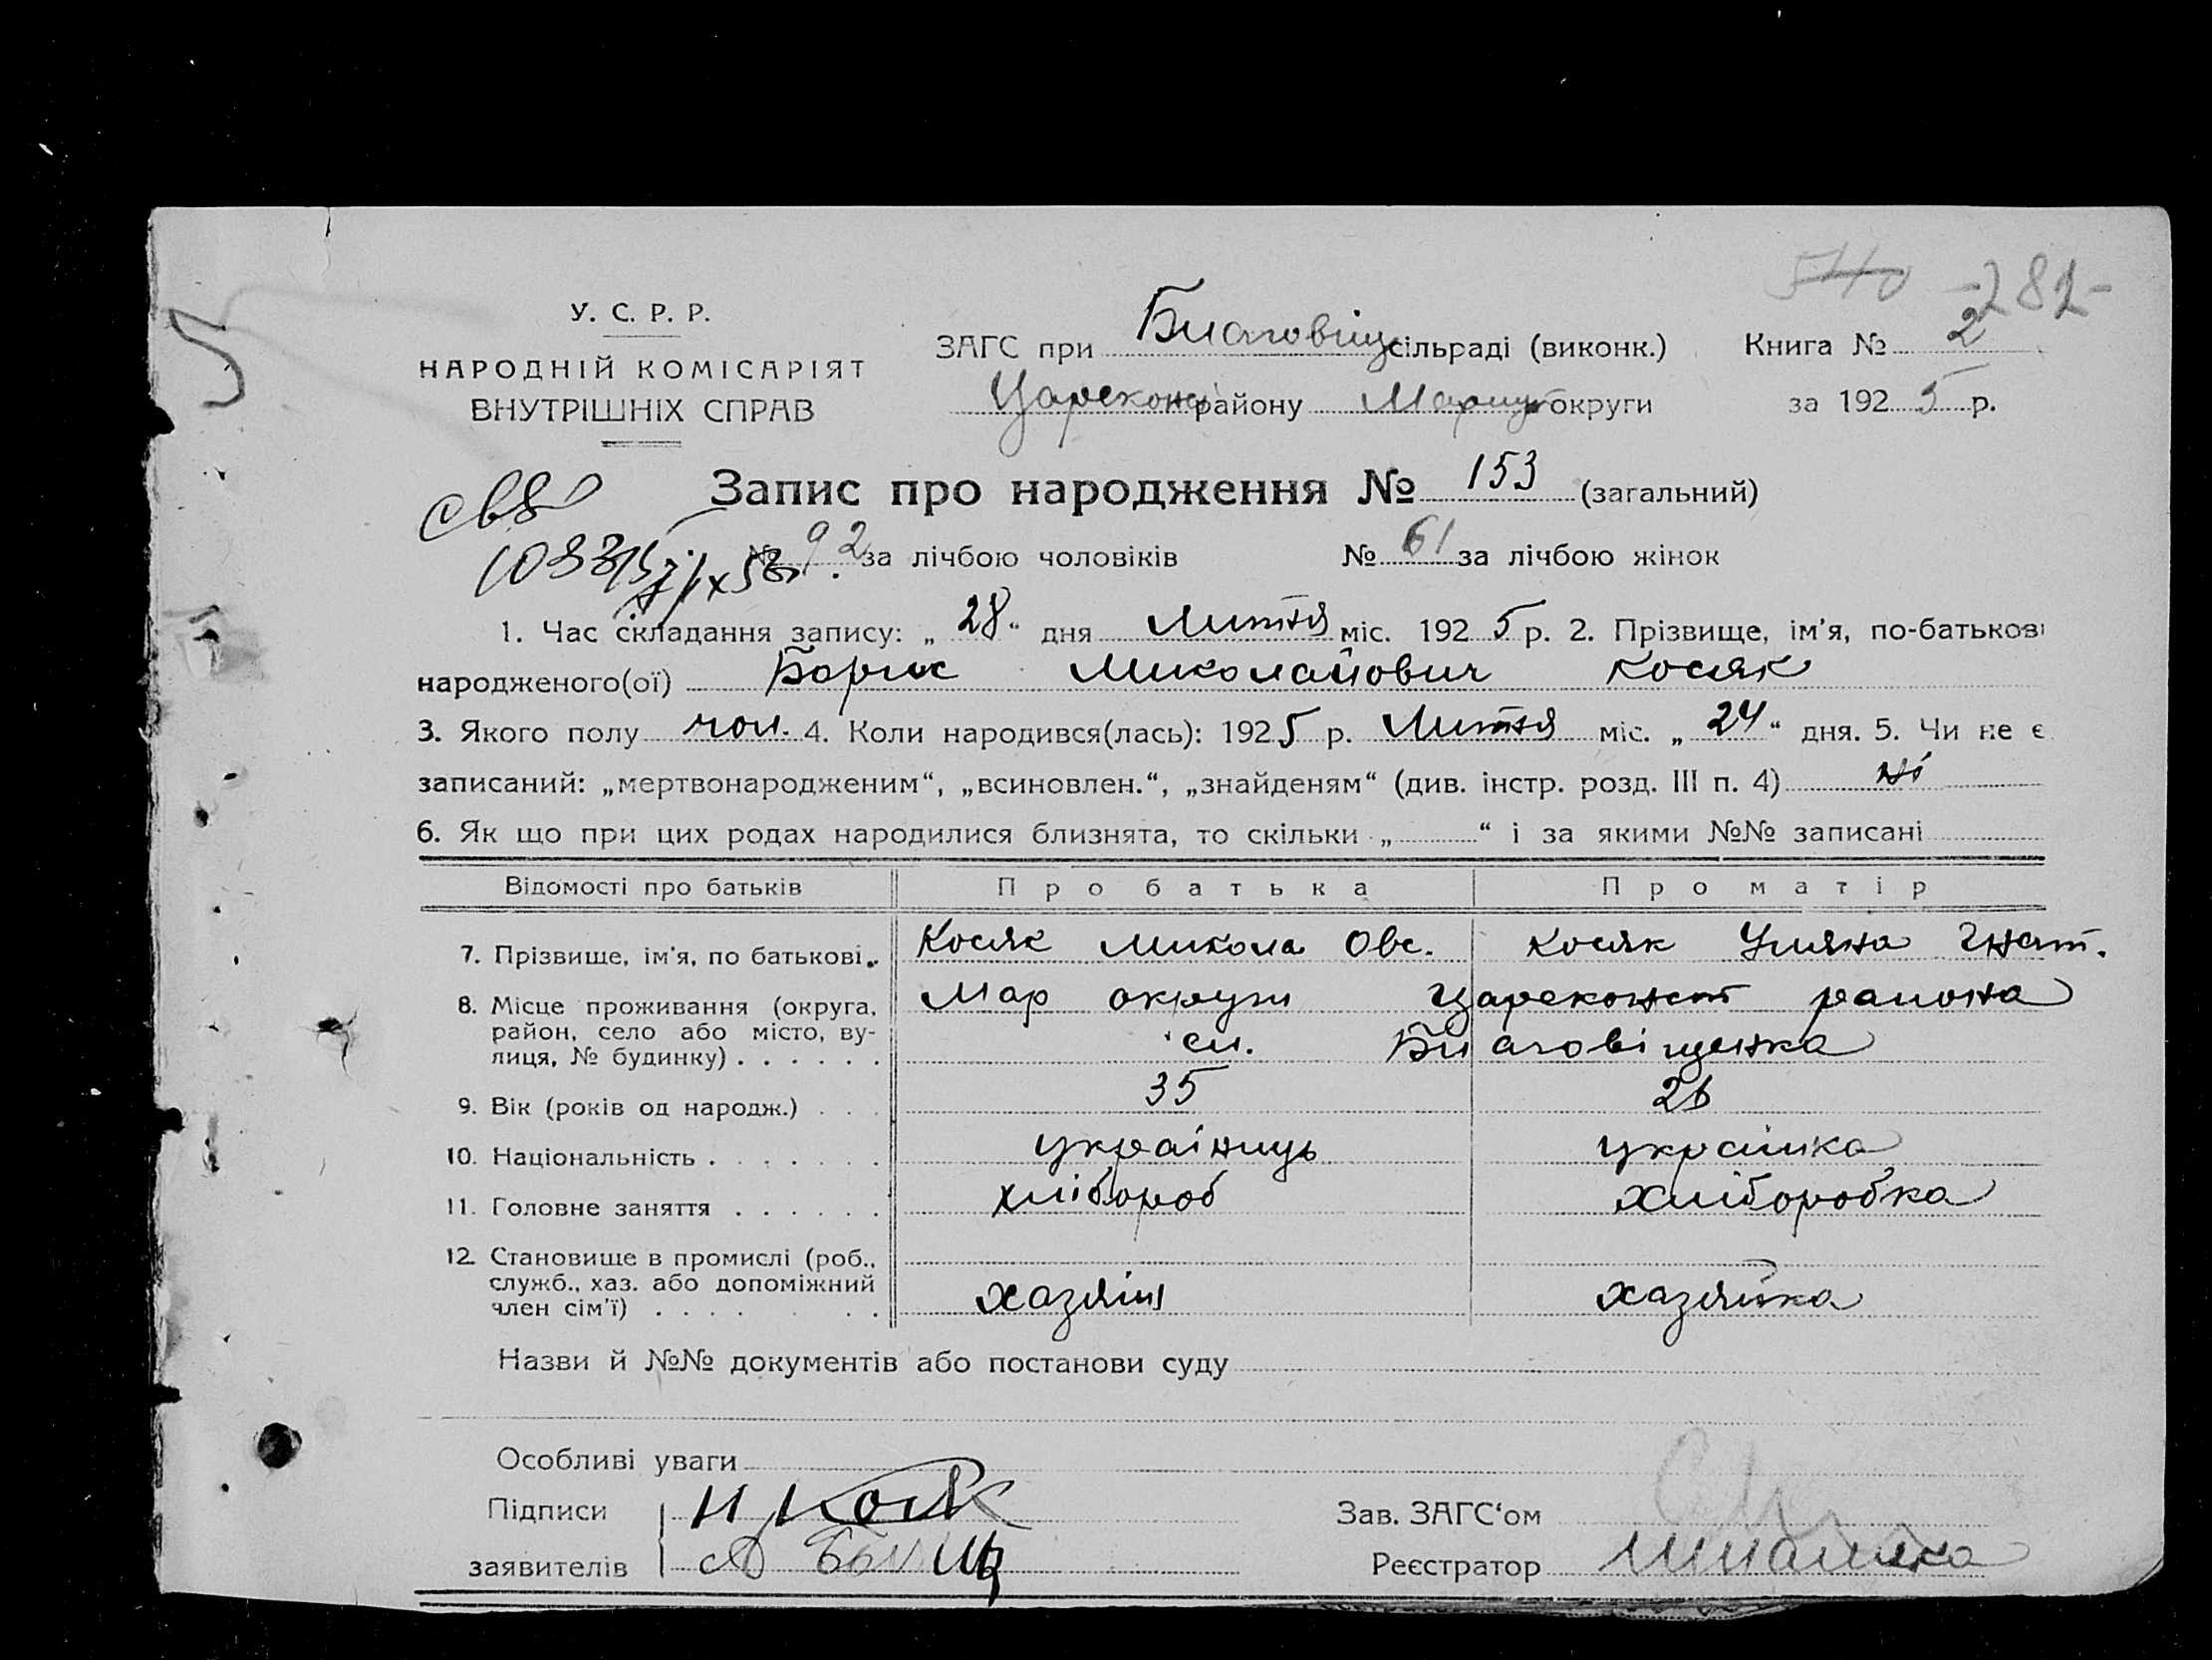 540 -282-
У. С. Р. Р.
НАРОДНІЙ КОМІСАРІЯТ
ВНУТРІШНІХ СПРАВ
ЗАГС при Благовіщ сільраді (виконк.) Книга № 2
Царекон району Маріуп округи за 192 5 р.
Запис про народження № 153 (загальний)
№ 92 за лічбою чоловіків № 61 за лічбою жінок
1. Час складання запису: „ 28 “ дня Липня міс. 192 5 р. 2. Прізвище, ім’я, по-батькові
народженого(ої) Борис Миколайович Косяк
3. Якого полу чол. 4. Коли народився(лась): 192 5 р. Липня міс. „ 24 “ дня. 5. Чи не є
записаний: „мертвонародженим“, „всиновлен.“, „знайденям“ (див. інстр. розд. III п. 4) ні
6. Як що при цих родах народилися близнята, то скільки „ “ і за якими №№ записані
Відомості про батьків Про батька Про матір
7. Прізвище, ім’я, по батькові. Косяк Микола Овс. Косяк Уляна Гнат.
8. Місце проживання (округа, Мар округи Цареконст района
район, село або місто, ву-
лиця, № будинку) . . . . . . сл. Благовіщенка
9. Вік (років од народж.) . . . 35 26
10. Національність . . . . . . . українець українка
11. Головне заняття . . . . . . хлібороб хліборобка
12. Становище в промислі (роб.,
служб., хаз. або допоміжний хазяїн хазяйка
член сім’ї) . . . . . . .
Назви й №№ документів або постанови суду
Особливі уваги
Підписи Н Косяк Зав. ЗАГС‘ом
заявителів А Реєстратор